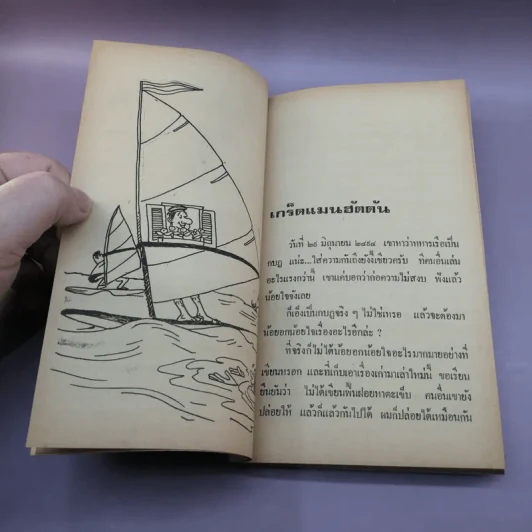 เกร็ดแมนฮัตตัน
วันที่ ๒๙ มิถุนายน ๒๔๙๔ เขาหาว่าทหารเรือเป็น
กบฏ แน่ะ...ใส่ความกันถึงยังงี้เชียวครับ ทีคนอื่นเล่น
อะไรแรงกว่านี้ เขาแค่บอกว่าก่อความไม่สงบ ฟังแล้ว
น้อยใจจังเลย
ก็เอ็งเป็นกบฏจริง ๆ ไม่ใช่เหรอ แล้วจะต้องมา
น้อยอกน้อยใจเรื่องอะไรอีกล่ะ ?
ที่จริงก็ไม่ได้น้อยอกน้อยใจอะไรมากมายอย่างที่
เขียนหรอก และที่เก็บเอาเรื่องเก่ามาเล่าใหม่นี้ ขอเรียน
ยืนยันว่า ไม่ได้เขียนฟื้นฝอยหาตะเข็บ คนอื่นเขายัง
ปล่อยให้ แล้วก็แล้วกันไปได้ ผมก็ปล่อยได้เหมือนกัน